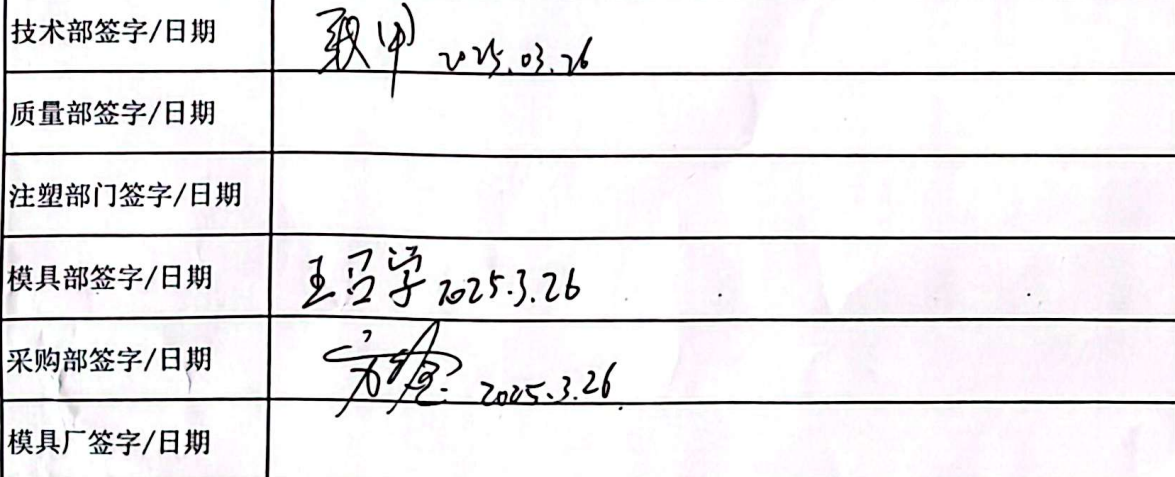 技术部签字/日期 2025.03.26
质量部签字/日期
注塑部门签字/日期
模具部签字/日期 王 学 2025.3.26
采购部签字/日期 2025.3.26
模具厂签字/日期